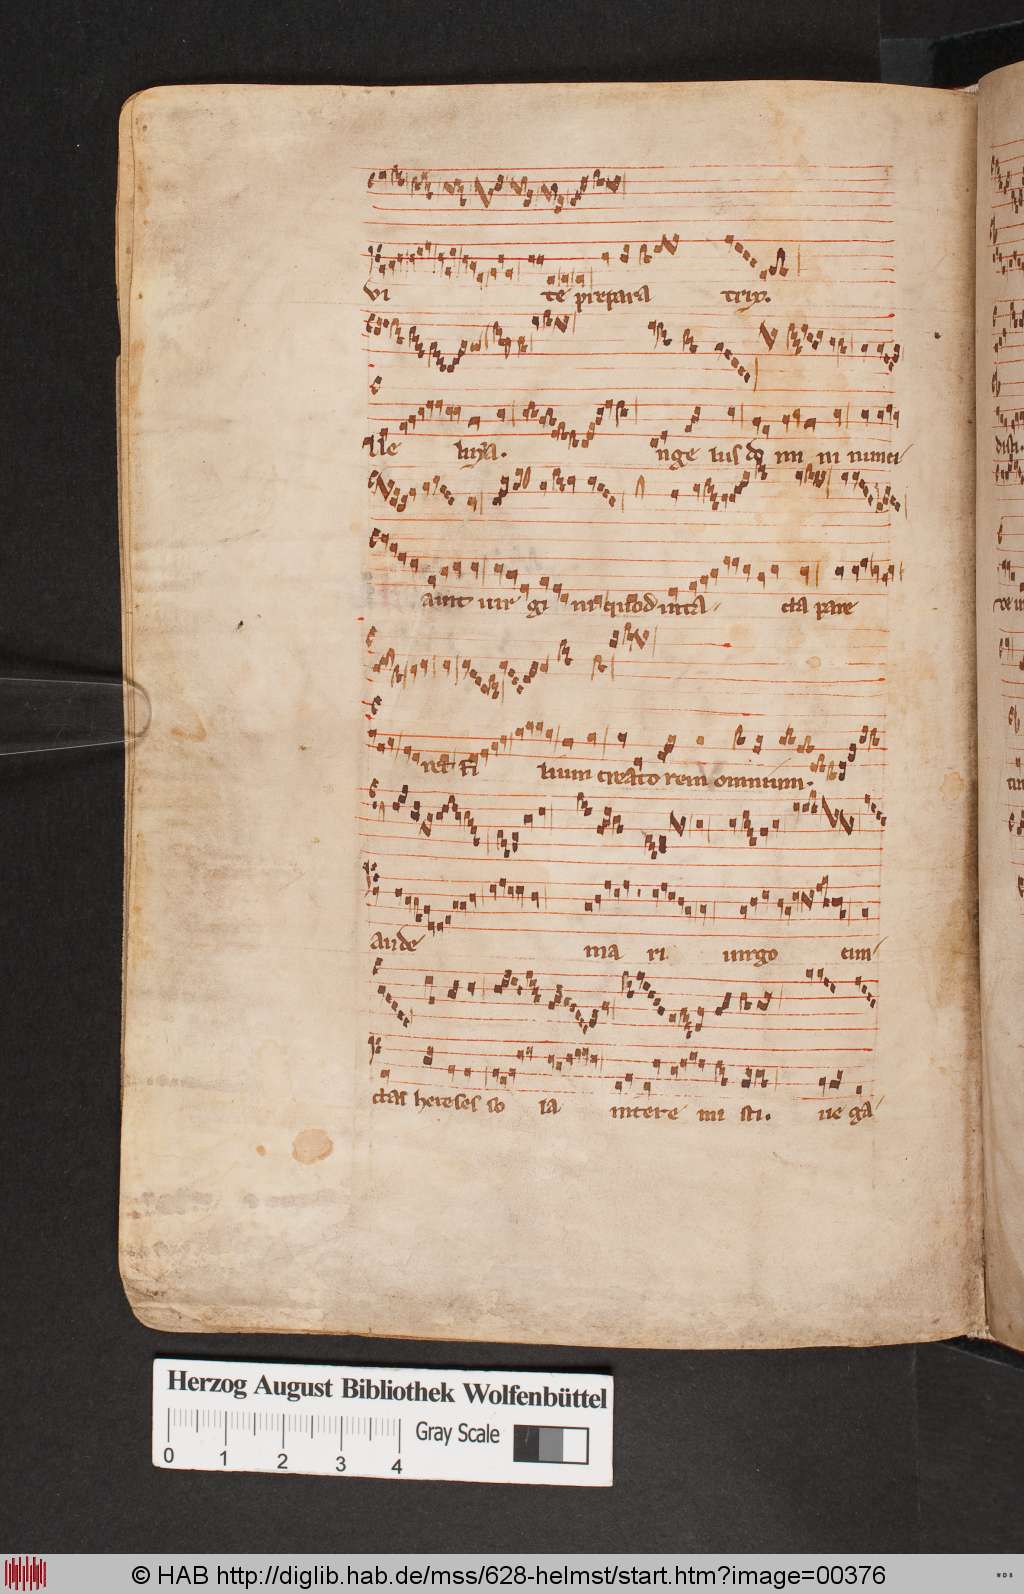 vi te prepara trix.
lle luya. nge lus do mi ni nunci
auit uir gi ni quod inta cta pare
ret fi lium creato rem omnium.
aude ma ri uirgo cun
ctas hereses so la intere mi sti. ue ga
Herzog August Bibliothek Wolfenbüttel
Gray Scale
0 1 2 3 4
© HAB http://diglib.hab.de/mss/628-helmst/start.htm?image=00376